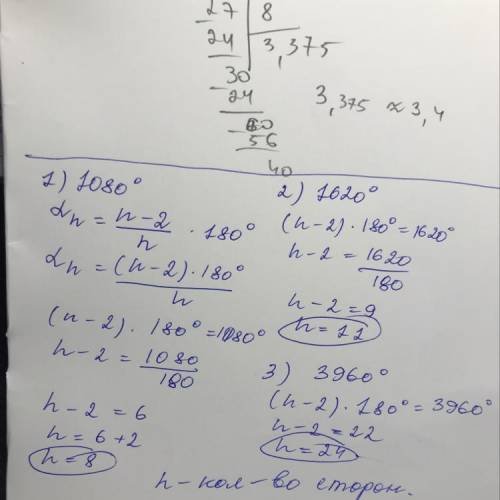 27 | 8
24 | 3,375
30
24
60
56
40
3,375 ≈ 3,4
1) 1080°
αn = n-2/n · 180°
αn = (n-2)·180°/n
(n-2)·180°=1080°
n-2 = 1080/180
n-2 = 6
n = 6+2
n=8
2) 1620°
(n-2)·180°=1620°
n-2 = 1620/180
n-2=9
n=11
3) 3960°
(n-2)·180°=3960°
n-2=22
n=24
n-кол-во сторон.